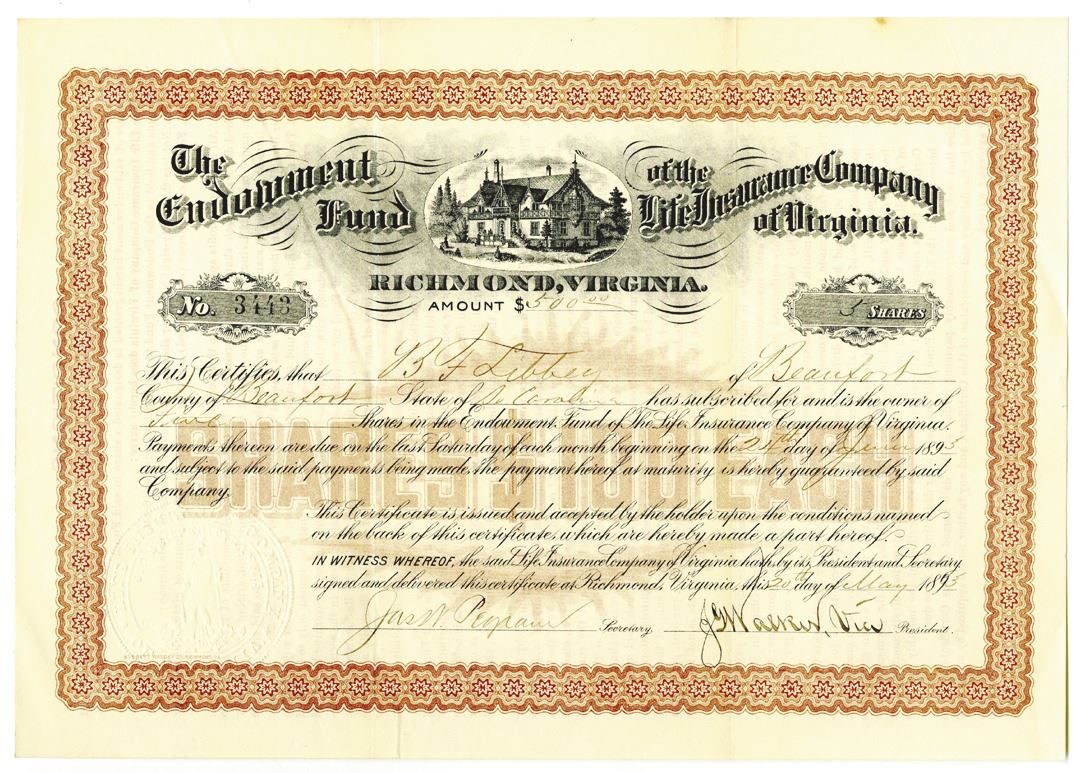 The Endowment Fund of the Life Insurance Company of Virginia.
RICHMOND, VIRGINIA.
AMOUNT $500.00
No. 3443
5 SHARES
This Certifies, that B F Libbey of Beaufort
County of Beaufort State of So Carolina has subscribed for and is the owner of
five Shares in the Endowment Fund of The Life Insurance Company of Virginia.
Payments thereon are due on the last Saturday of each month beginning on the 25th day of June 1893
and subject to the said payments being made, the payment hereof at maturity is hereby guaranteed by said
Company.
SHARES $100 EACH
This Certificate is issued and accepted by the holder upon the conditions named
on the back of this certificate, which are hereby made a part hereof.
IN WITNESS WHEREOF, the said Life Insurance Company of Virginia hath, by its President and Secretary
signed and delivered this certificate at Richmond, Virginia, this 20 day of May 1893
Jas W Pegram Secretary. J G Walker, Vice President.